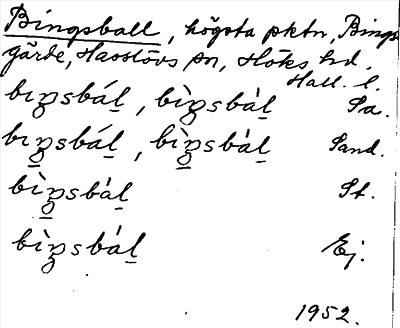 Bingsball, högsta pktn, Bings-
gärde, Hasslövs sn, Höks hd.
Hall. l.
bıŋsbál̲, bìŋsbàl̲ Sa.
bıŋ̲sbál̲, bìŋ̲sbàl̲ Sand.
bìŋ̲sbàl̲ St.
bìŋ̲sbàl̲ Ej.
1952.